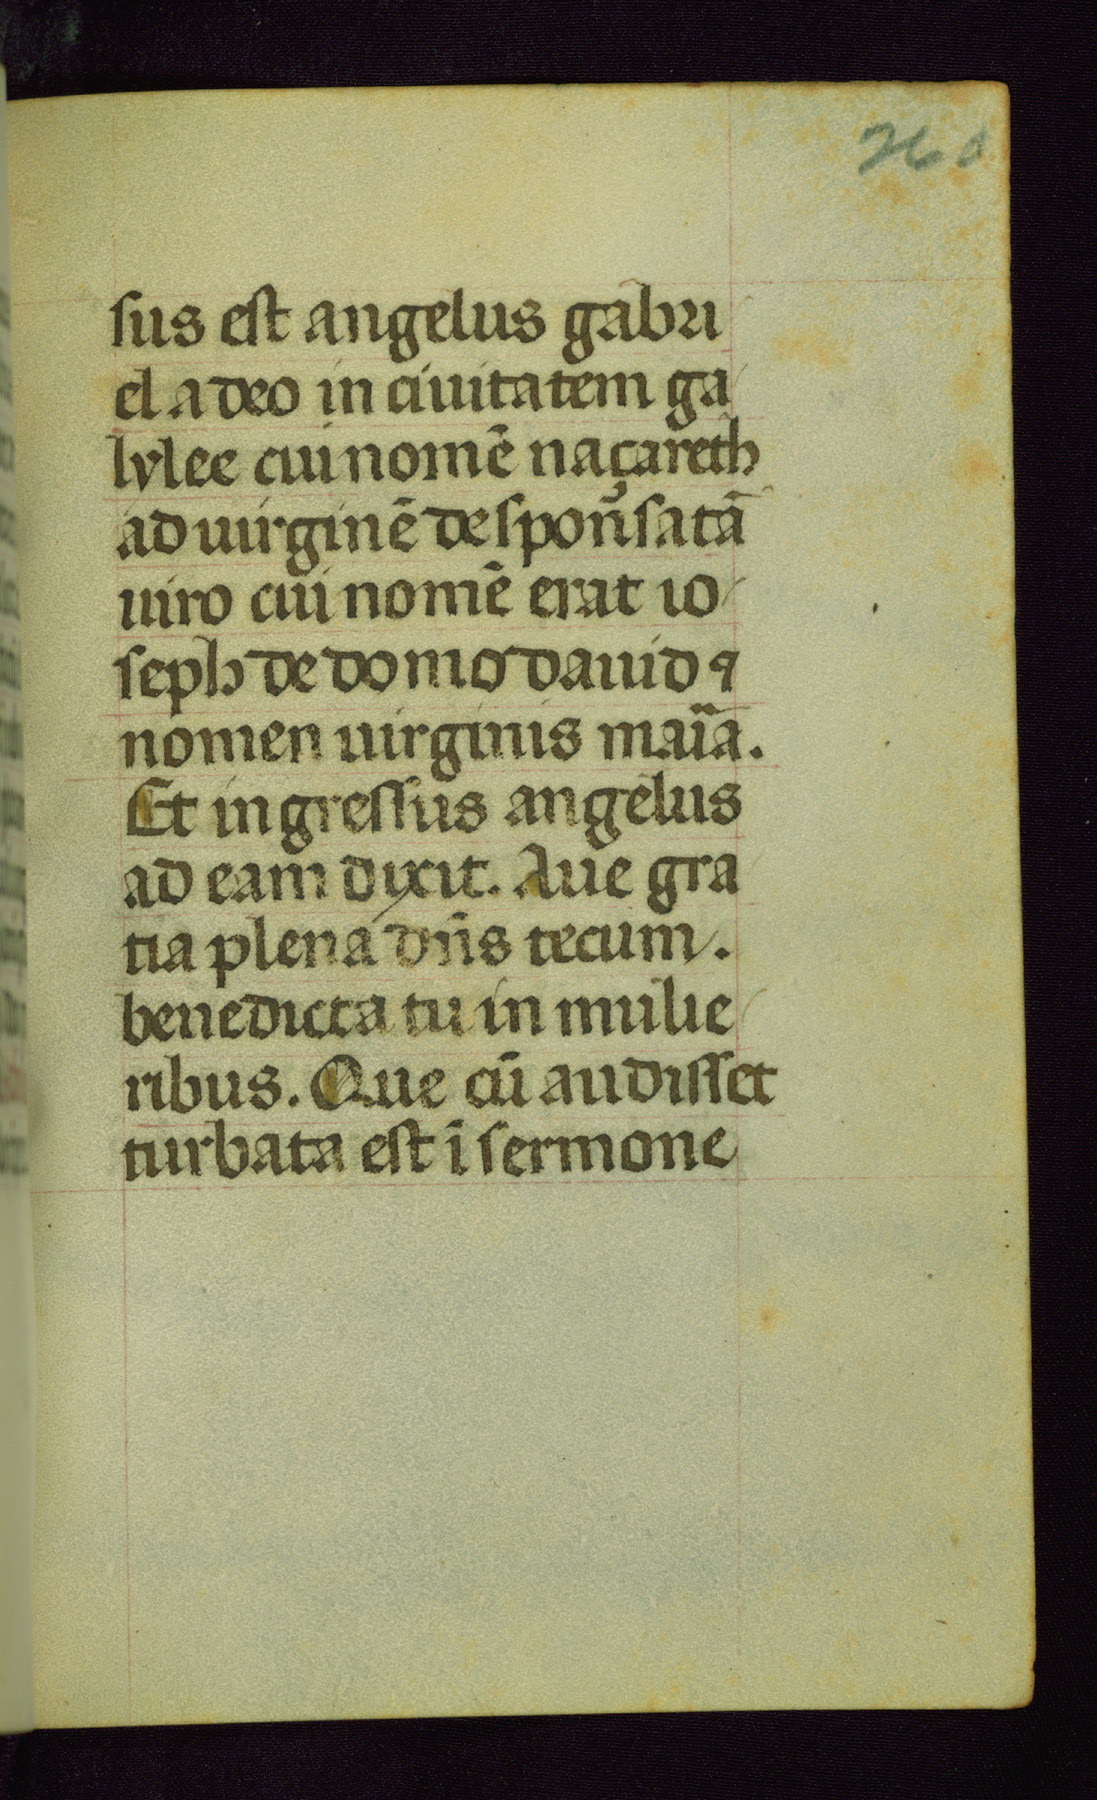 260
sus est angelus gabri
el a deo in ciuitatem ga
lylee cui nomē naçareth
ad uirginē despons̄atā
uiro cui nomē erat io
seph de domo dauid ⁊
nomen uirginis maı̈a.
Et ingressus angelus
ad eam dixit. Aue gra
tia plena dn̄s tecum.
benedicta tu in mulie
ribus. Que cū audisset
turbata est ī sermone